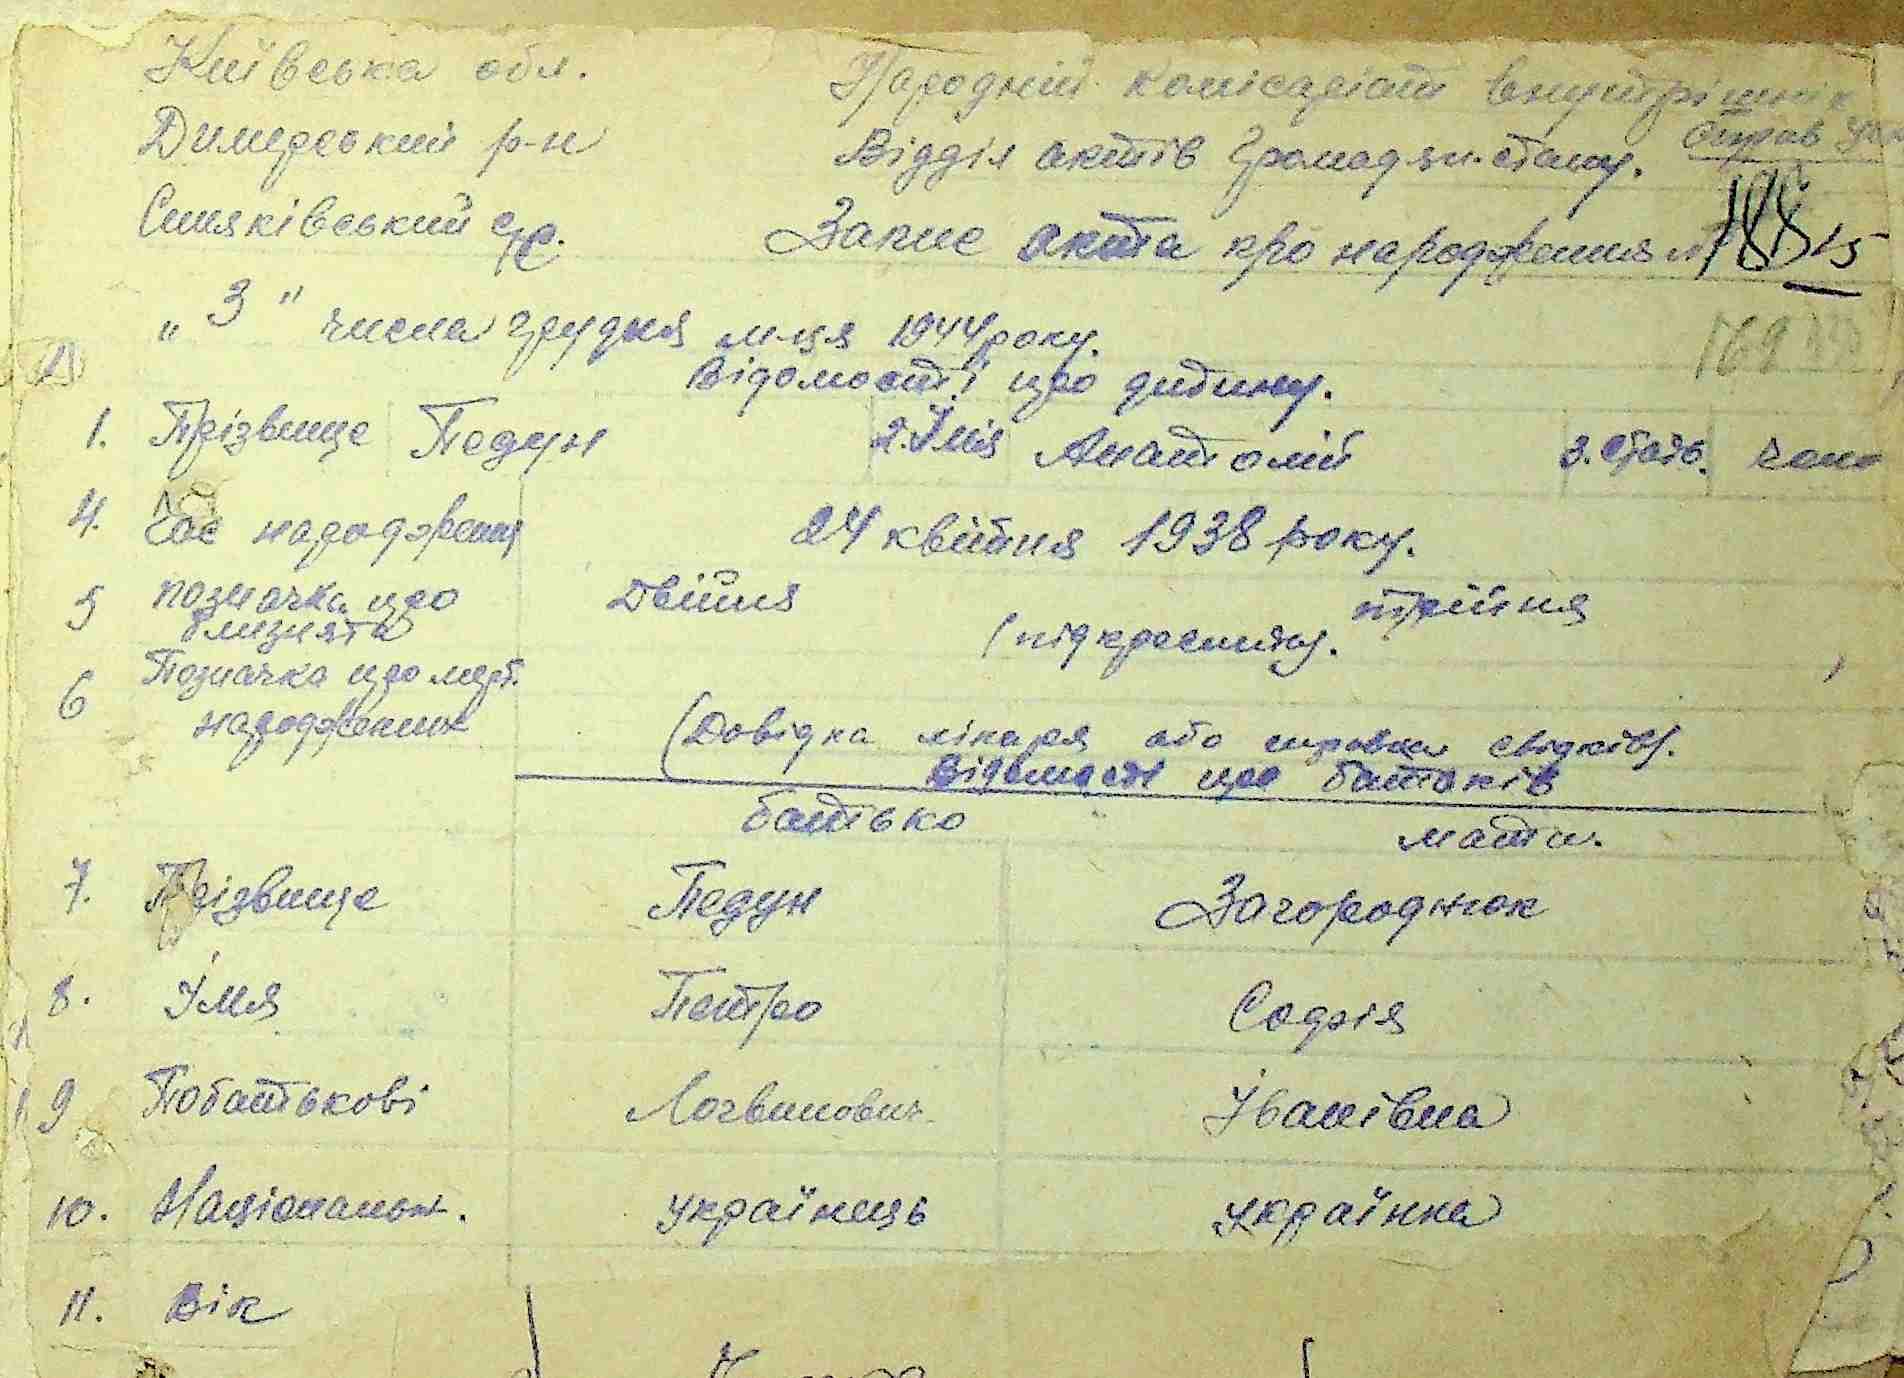 Київська обл. Народній комісаріат внутрішніх
Димерський р-н Відділ актів громадян. стану. справ
Синяківський с/р. Запис акта про народження № 15
"3" числа грудня м-ця 1944 року.
Відомості що дитину.
1. Прізвище Педун 2. Імя Анатолій 3. Стать. чол
4. Час народження 24 квітня 1938 року.
5 позначка що близнята Двійня трійня
(підкреслити).
6 Позначка що мерт. народжених
(Довідка лікаря або справка свідків).
Відомості що батьків
батько мати.
7. Прізвище Педун Загороднюк
8. Імя Петро Софія
9 Побатькові Логвинович Іванівна
10. Національн. українець українка
11. Вік